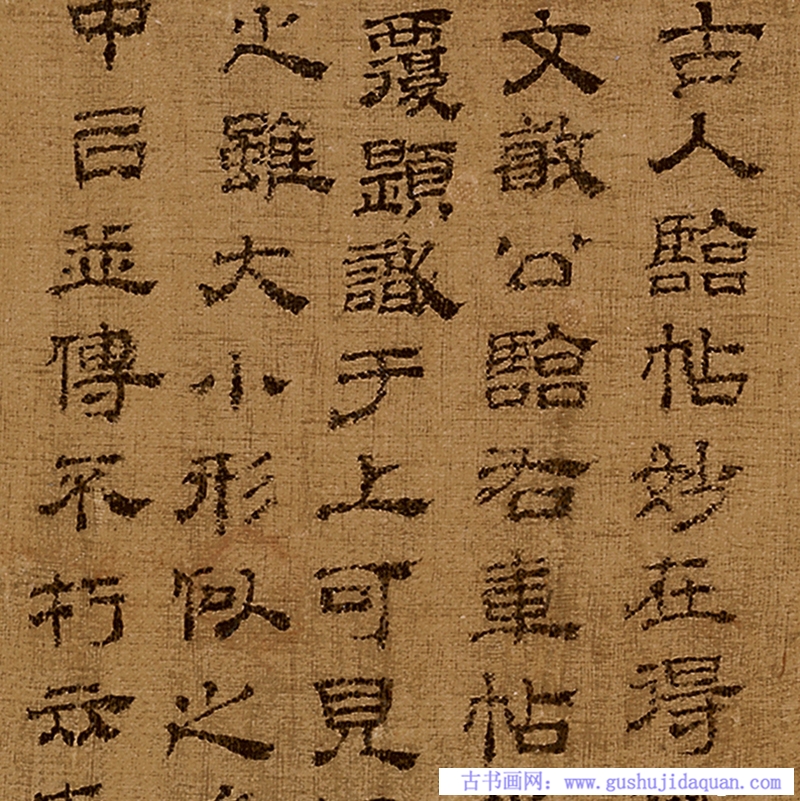 古人臨帖妙在得
文敏公臨右軍帖
覆題識于上可見
之雖大小形似之
中召並傳不朽茲
古书画网：www.gushujidaquan.com